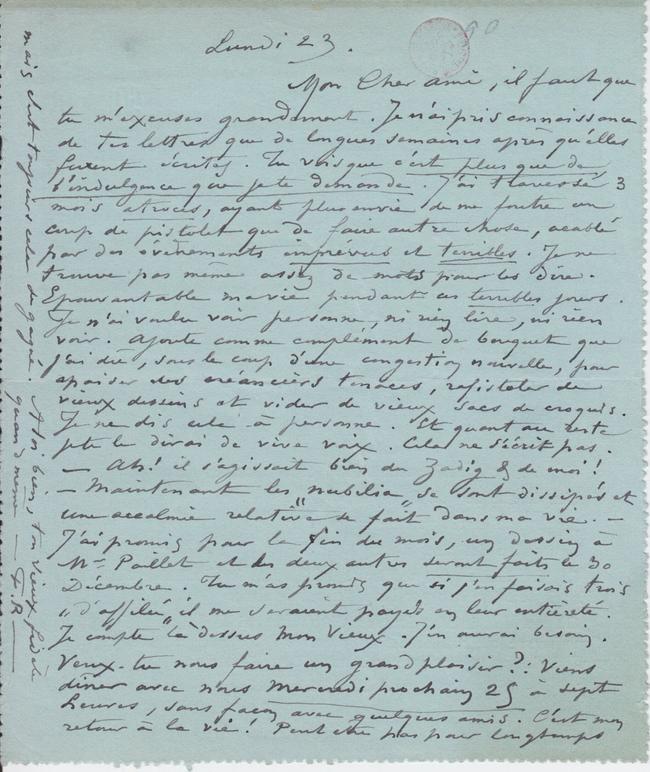 Lundi 23.
Mon Cher ami, il faut que
tu m'excuses grandement. Je n'ai pris connaissance
de tes lettres que de longues semaines après qu'elles
furent écrites. Tu vois que c'est plus que de
l'indulgence que je te demande. J'ai traversé 3
mois atroces, ayant plus envie de me foutre un
coup de pistolet que de faire autre chose, acablé
par des événements imprévus et terribles. Je ne
trouve pas même assez de mots pour les dire.
Epouvantable ma vie pendant ces terribles jours.
Je n'ai voulu voir personne, ni rien lire, ni rien
voir. Ajoute comme complément de bouquet que
j'ai dû, sous le coup d'une congestion nouvelle, pour
apaiser des créanciers tenaces, rafistoler de
vieux dessins et vider de vieux sacs de croquis.
Je ne dis cela à personne. Et quant au reste
je te le dirai de vive voix. Cela ne s'écrit pas.
— Ah! il s'agissait bien du Zadig & de moi!
— Maintenant les "nubilia" se sont dissipés et
une accalmie relative se fait dans ma vie. —
J'ai promis pour la fin du mois, un dessin à
Mr Paillet et les deux autres seront faits le 30
Décembre. Tu m'as promis que si j'en faisais trois
"d'affilée" il me seraient payés en leur entièreté.
Je compte là dessus mon vieux. J'en aurai besoin.
Veux-tu nous faire un grand plaisir?: Viens
diner avec nous mercredi prochain 25 à sept
heures, sans façon avec quelques amis. C'est mon
retour à la vie! Peut être pas pour longtemps
mais c'est toujours cela de gagné. A toi bien, ton vieux fidèle
quand même — F.R —